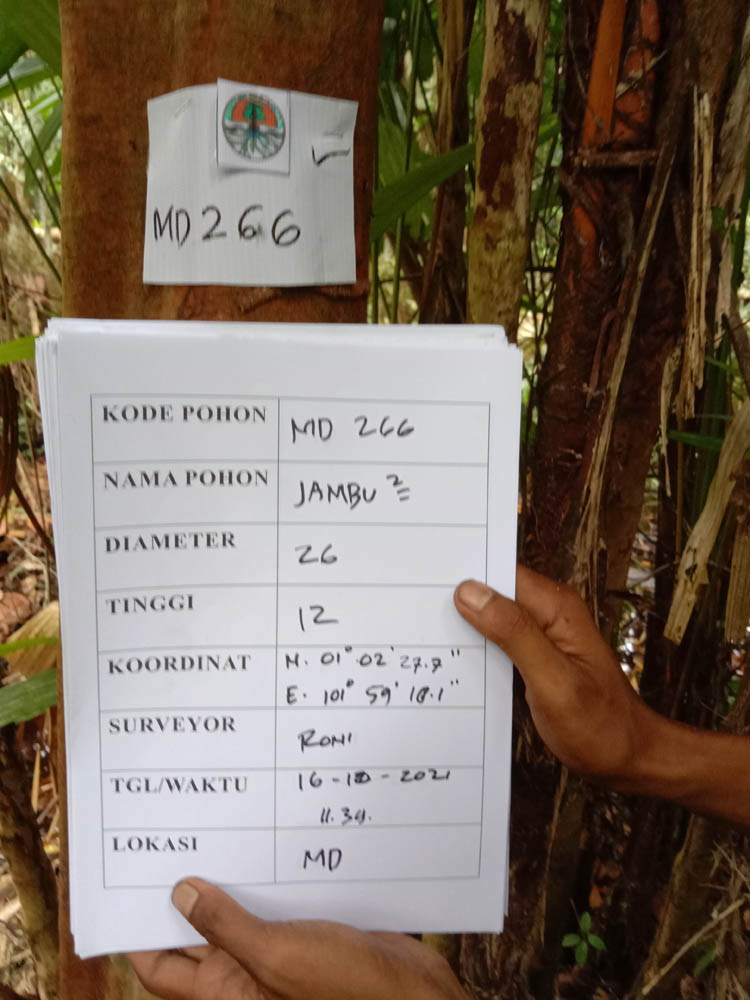 MD 266
KODE POHON MD 266
NAMA POHON JAMBU ²=
DIAMETER 26
TINGGI 12
KOORDINAT N. 01° 02' 27.7"
E. 101° 59' 18.1"
SURVEYOR RONI
TGL/WAKTU 16-10-2021
11.34.
LOKASI MD